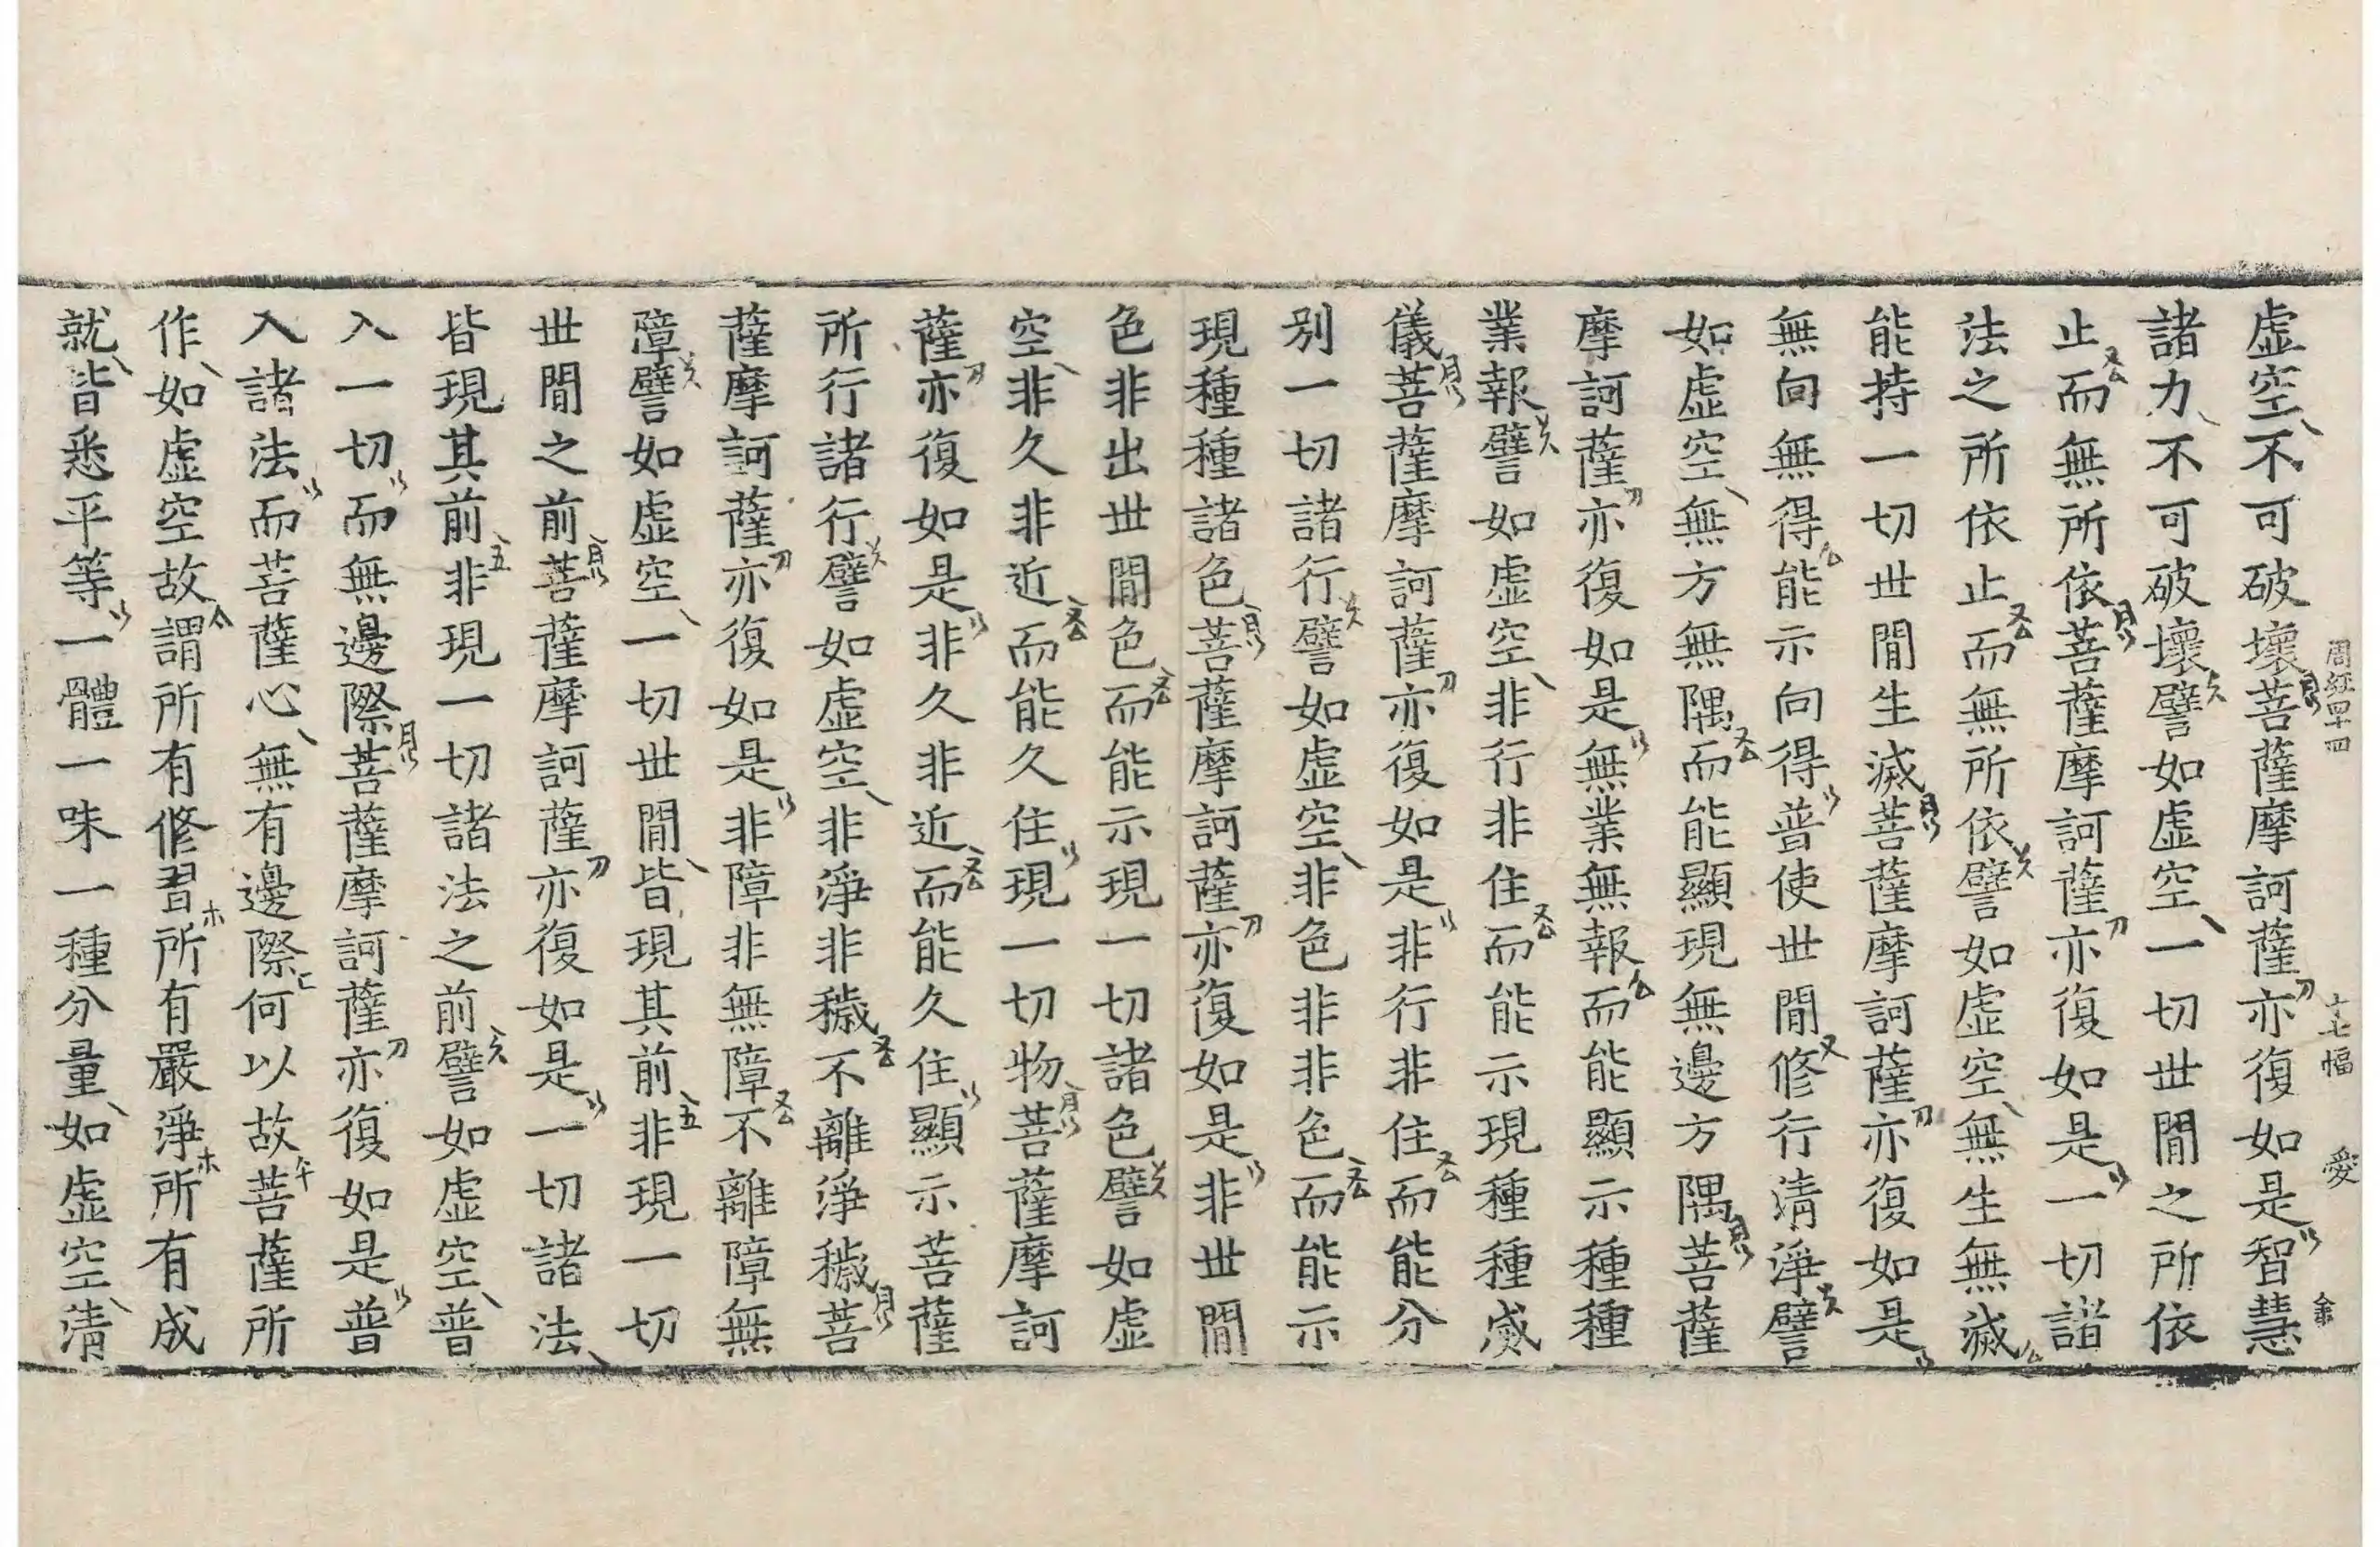 周經四十四 十七幅 愛 金
虛空不可破壞菩薩摩訶薩亦復如是智慧
諸力不可破壞譬如虛空一切世閒之所依
止而無所依菩薩摩訶薩亦復如是一切諸
法之所依止而無所依譬如虛空無生無滅
能持一切世閒生滅菩薩摩訶薩亦復如是
無向無得能示向得普使世閒修行清淨譬
如虛空無方無隅而能顯現無邊方隅菩薩
摩訶薩亦復如是無業無報而能顯示種種
業報譬如虛空非行非住而能示現種種威
儀菩薩摩訶薩亦復如是非行非住而能分
別一切諸行譬如虛空非色非非色而能示
現種種諸色菩薩摩訶薩亦復如是非世閒
色非出世閒色而能示現一切諸色譬如虛
空非久非近而能久住現一切物菩薩摩訶
薩亦復如是非久非近而能久住顯示菩薩
所行諸行譬如虛空非淨非穢不離淨穢菩
薩摩訶薩亦復如是非障非無障不離障無
障譬如虛空一切世閒皆現其前非現一切
世閒之前菩薩摩訶薩亦復如是一切諸法
皆現其前非現一切諸法之前譬如虛空普
入一切而無邊際菩薩摩訶薩亦復如是普
入諸法而菩薩心無有邊際何以故菩薩所
作如虛空故謂所有修習所有嚴淨所有成
就皆悉平等一體一味一種分量如虛空清